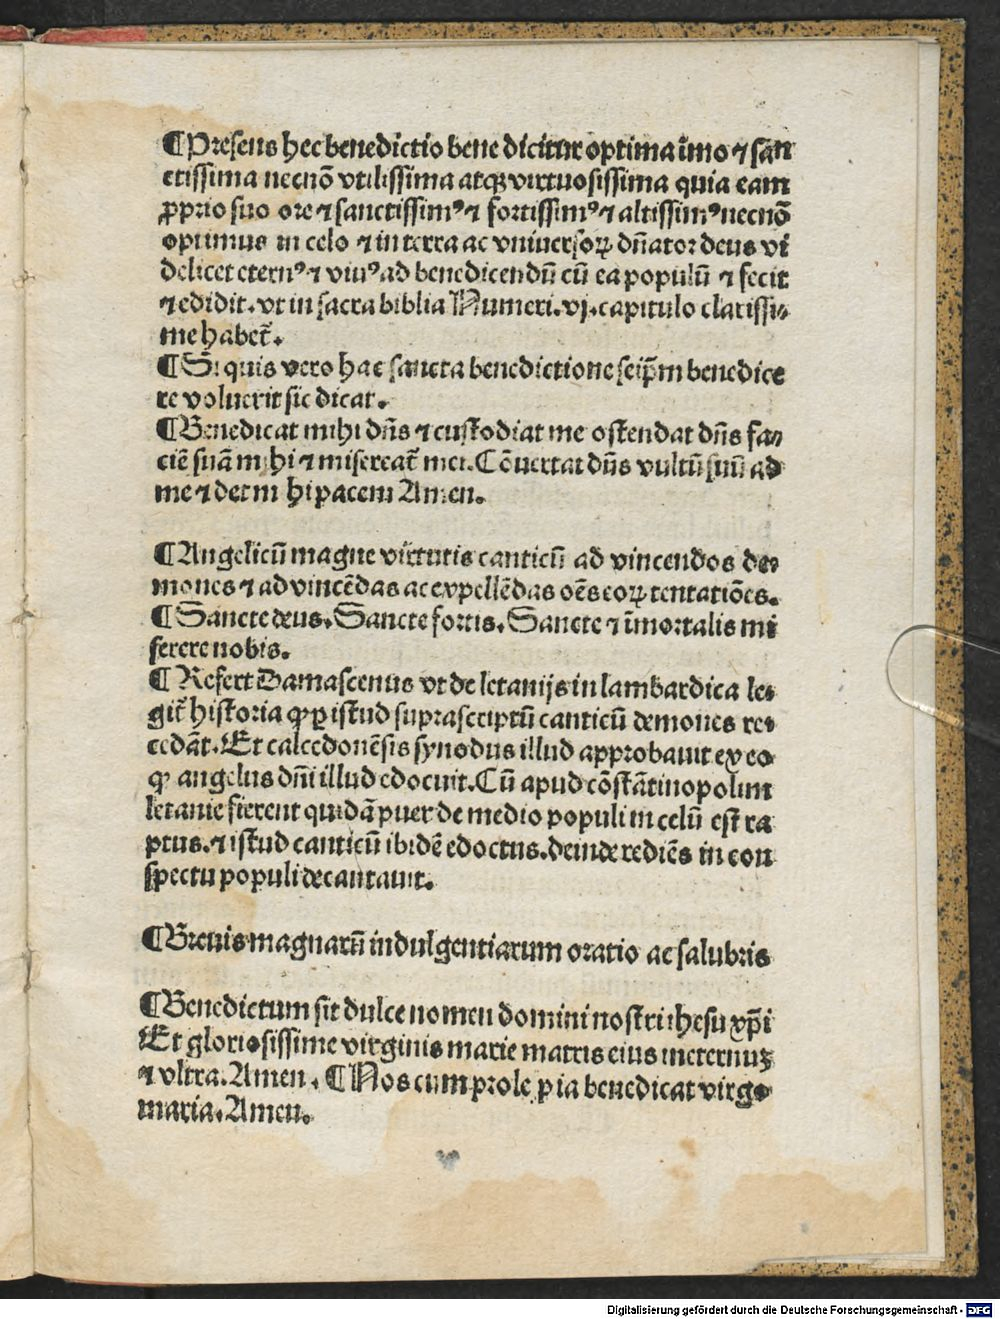 ¶Presens hec benedictio bene dicitur optima īmo ⁊ san
ctissima necnō vtilissima atqꝫ virtuosissima quia eam
ꝓprio suo ore ⁊ sanctissimꝰ ⁊ fortissimꝰ ⁊ altissimꝰ necnō
optimus in celo ⁊ in terra ac vniuersoꝝ dn̄ator deus vi
delicet eternꝰ ⁊ viuꝰ ad benedicendū cū ea populū ⁊ fecit
⁊ edidit. vt in sacra biblia Numeri. vj. capitulo clarissi⸗
me habet̄.
¶Si quis vero hac sancta benedictione seip̄m benedice
re voluerit sic dicat.
¶Benedicat mihi dn̄s ⁊ custodiat me ostendat dn̄s fa⸗
ciē suā mihi ⁊ misereat̄ mei. Cōuertat dn̄s vultū suū ad
me ⁊ det mihi pacem Amen.
¶Angelicū magne virtutis canticū ad vincendos de⸗
mones ⁊ ad vincēdas ac expellēdas oēs eoꝝ tentatiōes.
¶Sancte deus. Sancte fortis. Sancte ⁊ īmortalis mi
serere nobis.
¶Refert Damascenus vt de letanijs in lambardica le⸗
git̄ historia ꝙ ꝑ istud suprascriptū canticū demones re⸗
cedāt. Et calcedonēsis synodus illud approbauit ex eo
ꝙ angelus dn̄i illud edocuit. Cū apud cōstātinopolim
letanie fierent quidā puer de medio populi in celū est ra
ptus. ⁊ istud canticū ibidē edoctus. deinde rediēs in con
spectu populi decantauit.
¶Breuis magnarū indulgentiarum oratio ac salubris
¶Benedictum sit dulce nomen domini nostri ihesu xp̄i
Et gloriosissime virginis marie matris eius ineternuꝫ
⁊ vltra. Amen. ¶Nos cum prole pia benedicat virgo
maria. Amen.
Digitalisierung gefördert durch die Deutsche Forschungsgemeinschaft - DFG